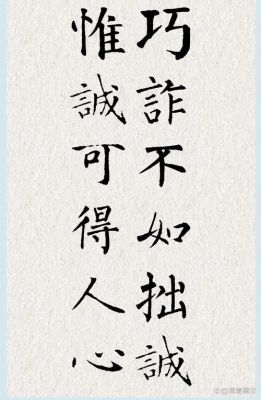 巧詐不如拙誠
惟誠可得人心